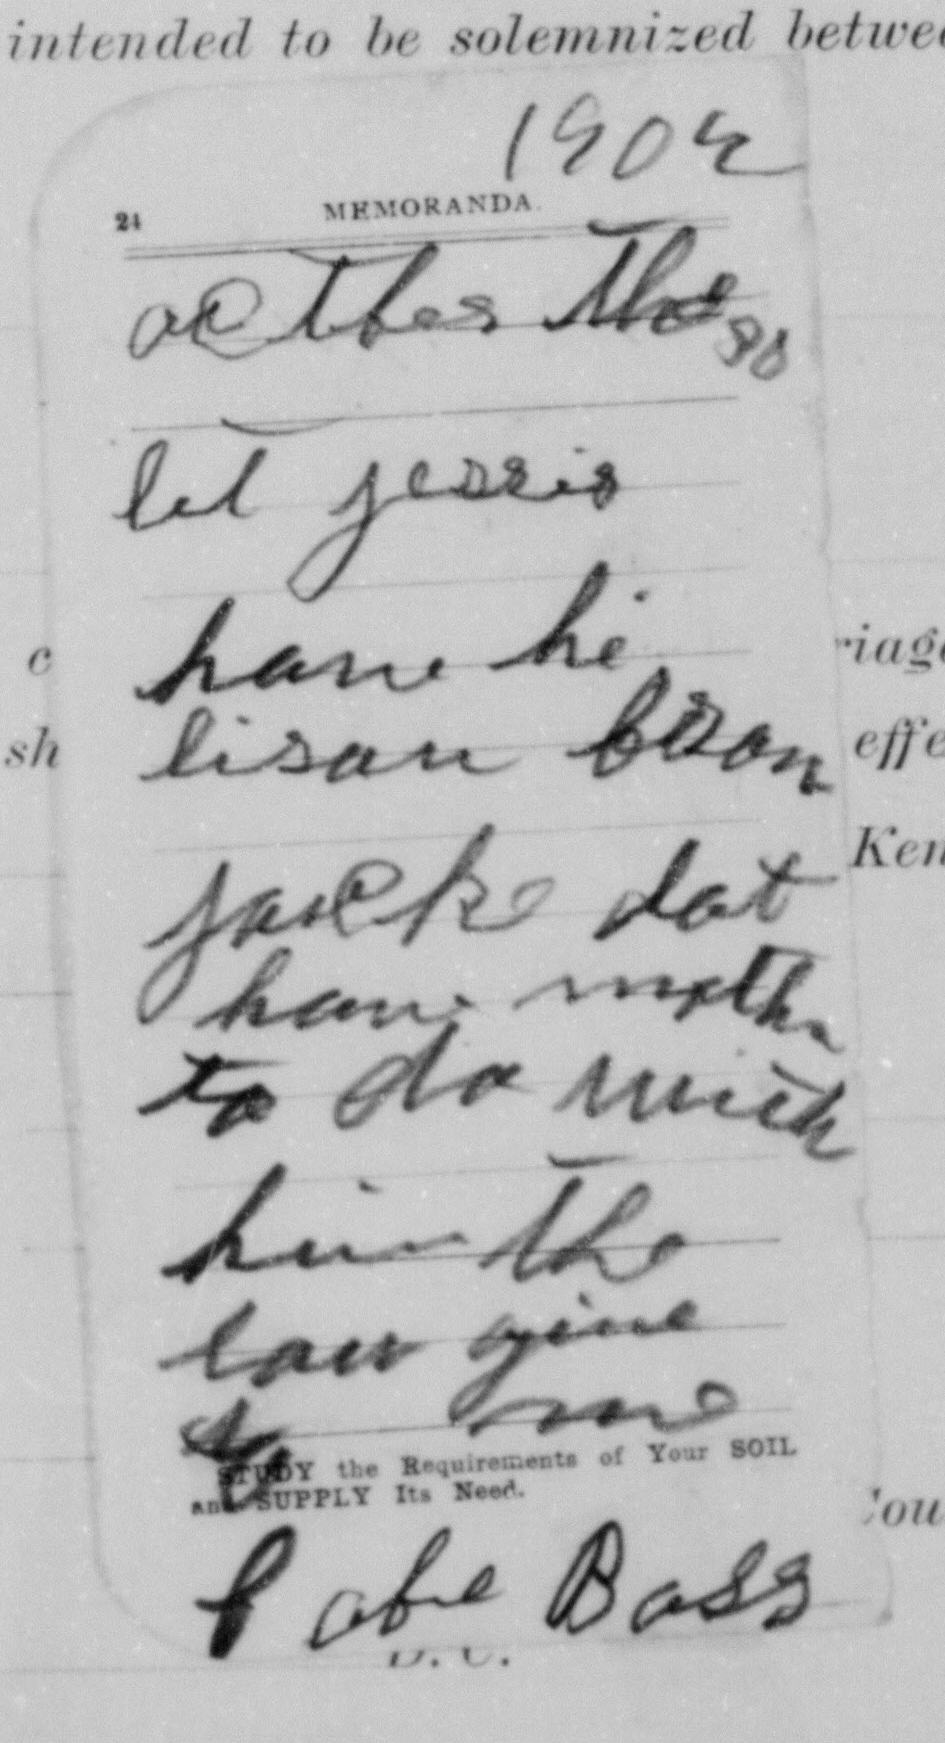 intended to be solemnized betwee
1904
24 MEMORANDA.
octber the 30
let jessie
have he
lisan
jack dat
have
to do with
him the
law give
to me
STUDY the Requirements of Your SOIL
and SUPPLY Its Need.
abe Bass
c
riage
sh
effe
Ken
Cou
D. C.